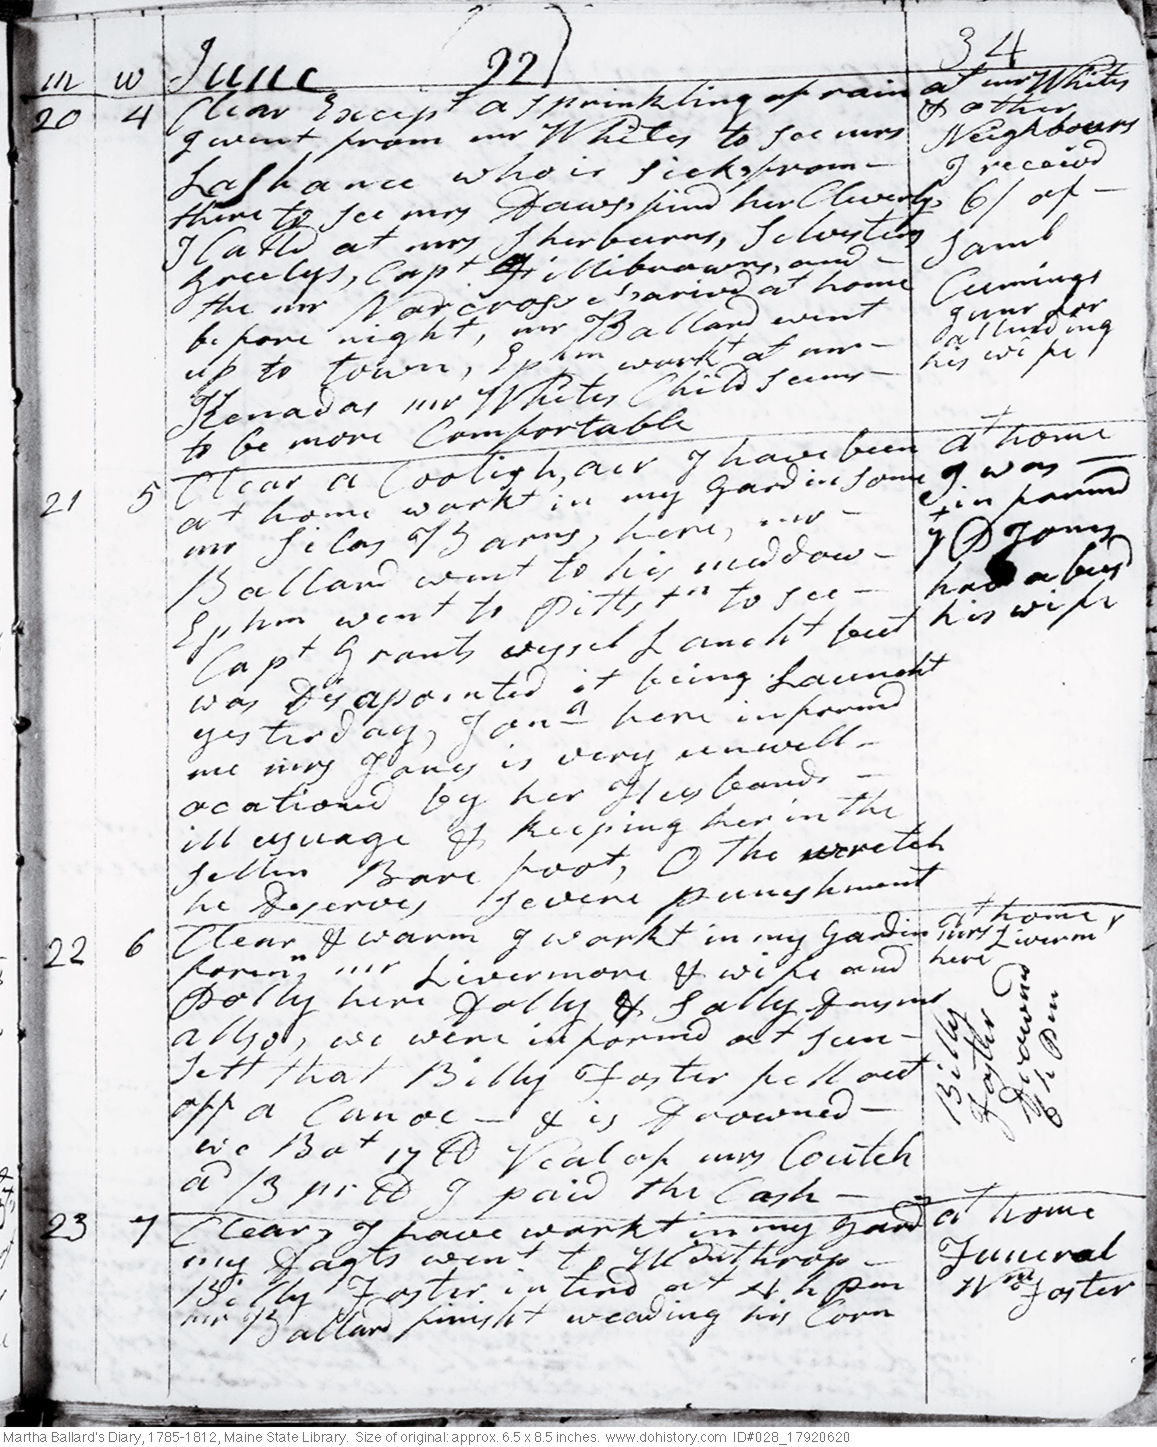 m w June 22) 34
20 4 Clear Except a sprinkling of rain
I went from mr Whites to see mrs
Lashance who is sick, from
there to see mrs Daws, find her Cleverly,
I Calld at mrs Sherburns, Selvesters
Greelys, Capt Fillibrowns, and
the mr Norcross's, arivd at home
before night, mr Ballard went
up to town, Ephm workt at mr
Kenadas mr Whites Child seems
to be more Comfortable
at mr Whites
& other
Neighbours
I receivd
6/ of
Saml
Cumings
junr for
atlending
his wife
21 5 Clear a Coolish, aer I have been
at home workt in my gardin some
mr Silas Barns, here, mr
Ballard went to his meddow
Ephm went to Pittstn to see
Capt Grants vessel Lancht but
was Disapointed it being Launcht
yesterday, Jona here informd
me mrs Jones is very unwell
ocationd by her Husbands
ill usuage & keeping her in the
sellin Bare foot, O the wretch
he Deserves severe punishment
at home
I was
informd
yt D Jones
had abusd
his wife
22 6 Clear & warm I workt in my gardin
foren, mr Livermore & wife and
Polly here Dolly & Sally
allso, we were informd at sun
sett that Billy Foster fell out
off a Canoe & is Drowned
we Bot 17 lb Veal of mrs Coutch
at /3 pr lb I paid the Cash
at home,
mrs Liverm
here
Billy
Foster
Drownd
6 h Pm
23 7 Clear, I have workt in my gard
my Dagts went to Winthrop
Billy Foster interd at 4 h pm
mr Ballard finisht weading his Corn
at home
Funeral
Wm Foster
Martha Ballard's Diary, 1785-1812, Maine State Library. Size of original: approx. 6.5 x 8.5 inches. www.dohistory.com ID#028_17920620